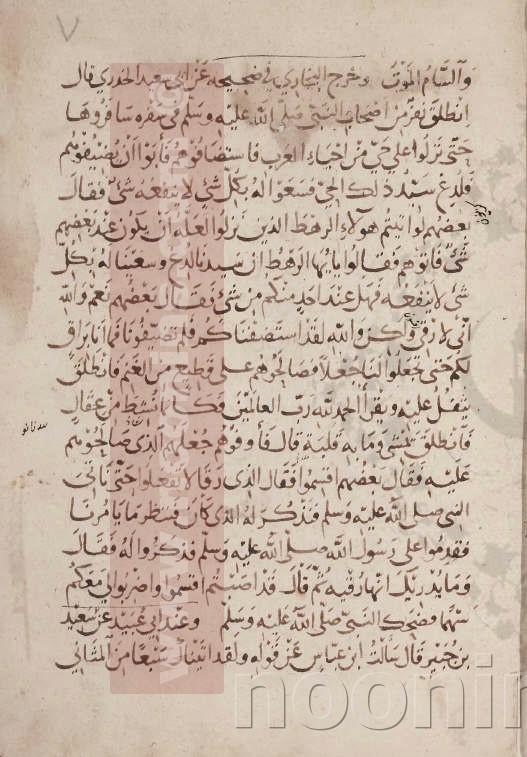 ٧
والسام الموت وخرج البخاري في صحيحه عن ابي سعيد الخدري قال
انطلق نفر من اصحاب النبي صلى الله عليه وسلم في سفره سافروها
حتى نزلوا على حي من احياء العرب فاستضافوهم فابوا ان يضيفوهم
فلدغ سيد ذلك الحي فسعوا له بكل شئ لا ينفعه شئ فقال
بعضهم لو اتيتم هولاء الرهط الذين نزلوا لعله ان يكون عند بعضهم
شئ فاتوهم فقالوا يا ايها الرهط ان سيدنا لدغ وسعينا له بكل
شئ لا ينفعه فهل عند احد منكم من شئ فقال بعضهم نعم والله
اني لارقي ولكن والله لقد استضفناكم فلم تضيفونا فما انا براق
لكم حتى تجعلوا لنا جعلا فصالحوهم على قطيع من الغنم فانطلق
يتفل عليه ويقرا الحمد لله رب العالمين فكانما نشط من عقال
فانطلق يمشي وما به قلبة قال فاوفوهم جعلهم الذي صالحوهم
عليه فقال بعضهم اقسموا فقال الذي رقا لا تفعلوا حتى ناتي
النبي صلى الله عليه وسلم فنذكر له الذي كان فننظر ما يامرنا
فقدموا على رسول الله صلى الله عليه وسلم فذكروا له فقال
وما يدريك انها رقيه ثم قال قد اصبتم اقسموا واضربوا لي معكم
سهما فضحك النبي صلى الله عليه وسلم وعند ابي عبيد عن سعيد
بن جبير قال سالت ابن عباس عن قوله ولقد اتيناك سبعا من المثاني
noonin